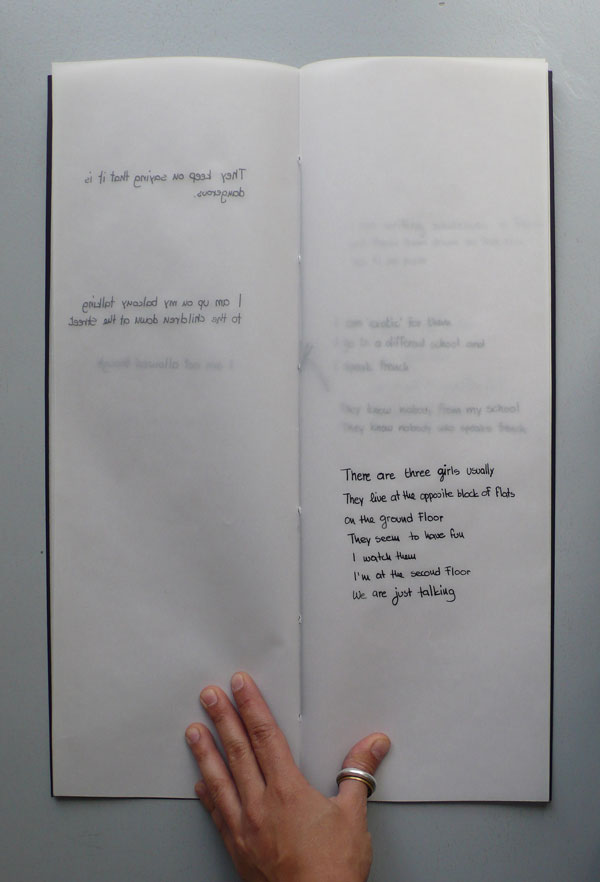 They keep on saying that it is
dangerous.
I am up on my balcony talking
to the children down at the street
I am not allowed though
I am writing
I am 'exotic' for them
I go to a different school and
I speak french
They know nobody from my school
They know nobody who speaks french
There are three girls usually
They live at the opposite block of flats
on the ground floor
They seem to have fun
I watch them
I'm at the second floor
We are just talking